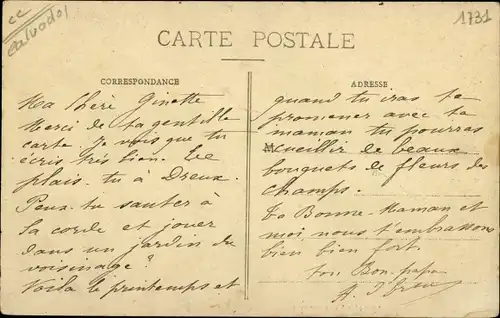 cc
Calvados
1731
CARTE POSTALE
CORRESPONDANCE
Ma Chère Ginette
Merci de ta gentille
carte. Je vois que tu
écris très bien. Te
plais-tu à Dreux.
Peux-tu sauter à
la corde et jouer
dans un jardin du
voisinage?
Voilà le printemps et
ADRESSE
quand tu iras te
promener avec ta
maman tu pourras
cueillir de beaux
bouquets de fleurs des
champs.
Ta Bonne-Maman et
moi nous t'embrassons
bien bien fort
ton Bon-papa
A.